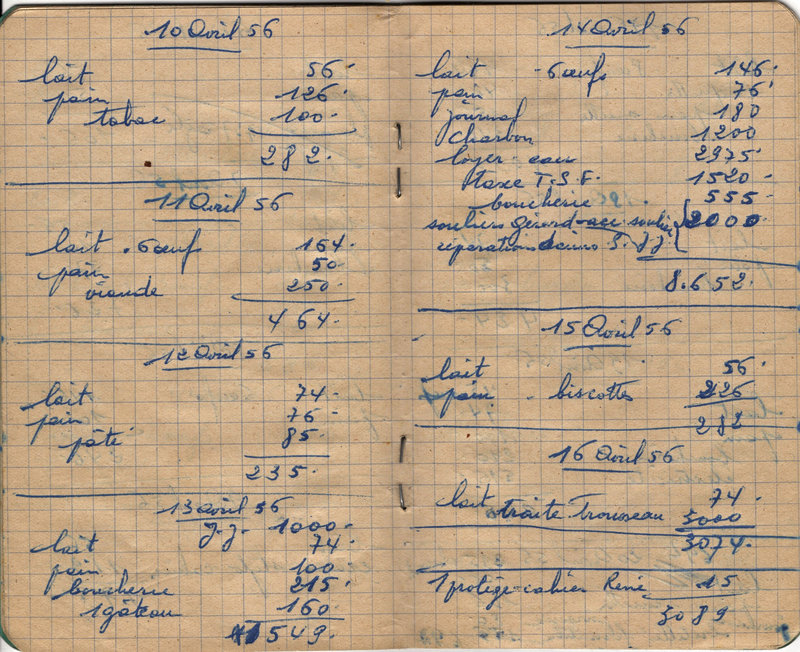 10 Avril 56
lait 56.
pain 126.
tabac 100.
282.
11 Avril 56
lait . 6 œuf 164.
pain 50.
viande 250.
464.
12 Avril 56
lait 74.
pain 76.
pâté 85.
235.
13 Avril 56
J.J. 1000.
lait 74.
pain 100
boucherie 215.
1 gâteau 160.
1549.
14 Avril 56
lait - 6 œufs 146.
pain 76.
journal 180
charbon 1200
loyer - eau 2975.
taxe T.S.F. 1520.
boucherie 555
souliers Gérard
réparations 2000.
8.652.
15 Avril 56
lait 56.
pain - biscottes 226
282
16 Avril 56
lait 74.
traite Trousseau 3000
3074.
1 protège-cahier René 15
3089